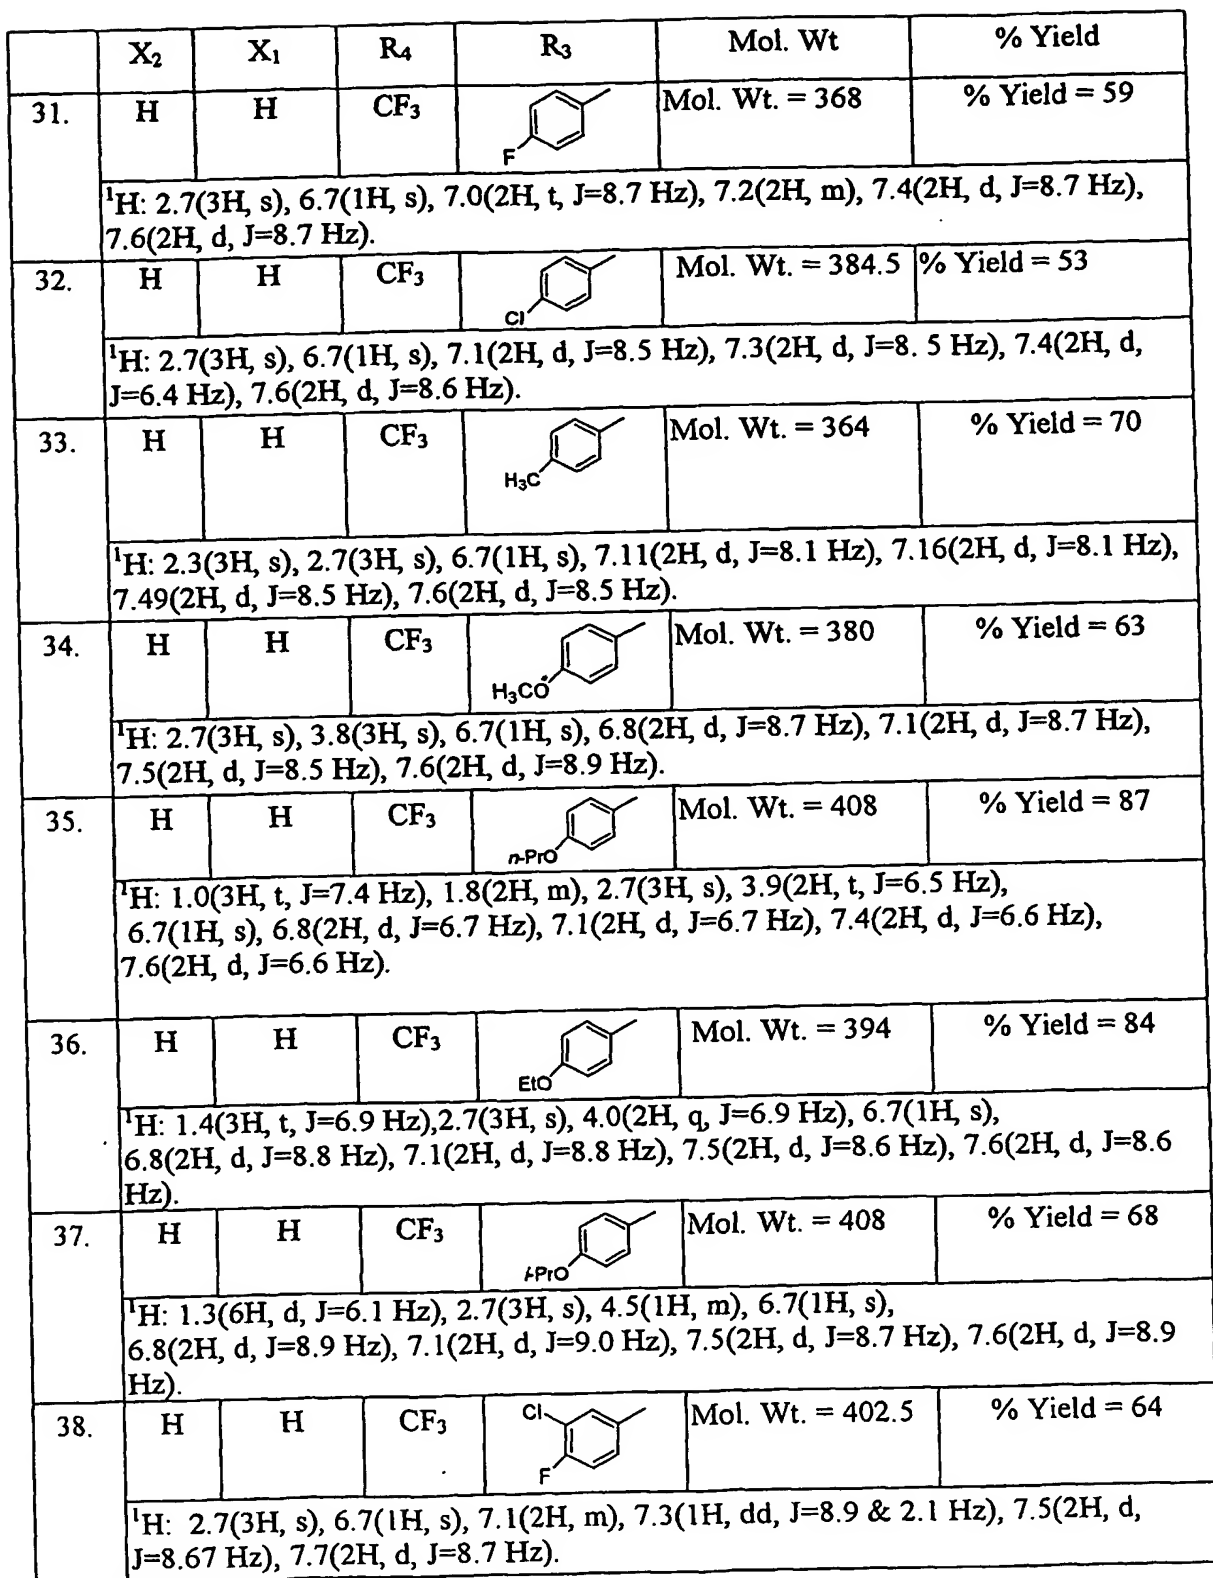 X₂ X₁ R₄ R₃ Mol. Wt % Yield
31. H H CF₃ Mol. Wt. = 368 % Yield = 59
F
¹H: 2.7(3H, s), 6.7(1H, s), 7.0(2H, t, J=8.7 Hz), 7.2(2H, m), 7.4(2H, d, J=8.7 Hz),
7.6(2H, d, J=8.7 Hz).
32. H H CF₃ Mol. Wt. = 384.5 % Yield = 53
Cl
¹H: 2.7(3H, s), 6.7(1H, s), 7.1(2H, d, J=8.5 Hz), 7.3(2H, d, J=8. 5 Hz), 7.4(2H, d,
J=6.4 Hz), 7.6(2H, d, J=8.6 Hz).
33. H H CF₃ Mol. Wt. = 364 % Yield = 70
H₃C
¹H: 2.3(3H, s), 2.7(3H, s), 6.7(1H, s), 7.11(2H, d, J=8.1 Hz), 7.16(2H, d, J=8.1 Hz),
7.49(2H, d, J=8.5 Hz), 7.6(2H, d, J=8.5 Hz).
34. H H CF₃ Mol. Wt. = 380 % Yield = 63
H₃CO
¹H: 2.7(3H, s), 3.8(3H, s), 6.7(1H, s), 6.8(2H, d, J=8.7 Hz), 7.1(2H, d, J=8.7 Hz),
7.5(2H, d, J=8.5 Hz), 7.6(2H, d, J=8.9 Hz).
35. H H CF₃ Mol. Wt. = 408 % Yield = 87
n-PrO
¹H: 1.0(3H, t, J=7.4 Hz), 1.8(2H, m), 2.7(3H, s), 3.9(2H, t, J=6.5 Hz),
6.7(1H, s), 6.8(2H, d, J=6.7 Hz), 7.1(2H, d, J=6.7 Hz), 7.4(2H, d, J=6.6 Hz),
7.6(2H, d, J=6.6 Hz).
36. H H CF₃ Mol. Wt. = 394 % Yield = 84
EtO
¹H: 1.4(3H, t, J=6.9 Hz),2.7(3H, s), 4.0(2H, q, J=6.9 Hz), 6.7(1H, s),
6.8(2H, d, J=8.8 Hz), 7.1(2H, d, J=8.8 Hz), 7.5(2H, d, J=8.6 Hz), 7.6(2H, d, J=8.6
Hz).
37. H H CF₃ Mol. Wt. = 408 % Yield = 68
i-PrO
¹H: 1.3(6H, d, J=6.1 Hz), 2.7(3H, s), 4.5(1H, m), 6.7(1H, s),
6.8(2H, d, J=8.9 Hz), 7.1(2H, d, J=9.0 Hz), 7.5(2H, d, J=8.7 Hz), 7.6(2H, d, J=8.9
Hz).
38. H H CF₃ Cl Mol. Wt. = 402.5 % Yield = 64
F
¹H: 2.7(3H, s), 6.7(1H, s), 7.1(2H, m), 7.3(1H, dd, J=8.9 & 2.1 Hz), 7.5(2H, d,
J=8.67 Hz), 7.7(2H, d, J=8.7 Hz).